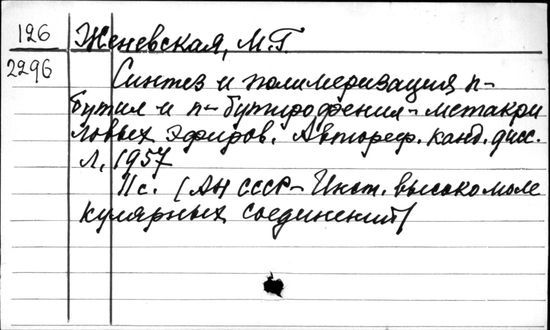 126 Женевская, М.Г.
2296 Синтез и полимеризация п-
бутил и п-бутирофенил-метакри
ловых эфиров. Автореф. канд. дисс.
Л., 1957
11с. (АН СССР-Инст. высокомоле
кулярных соединений)